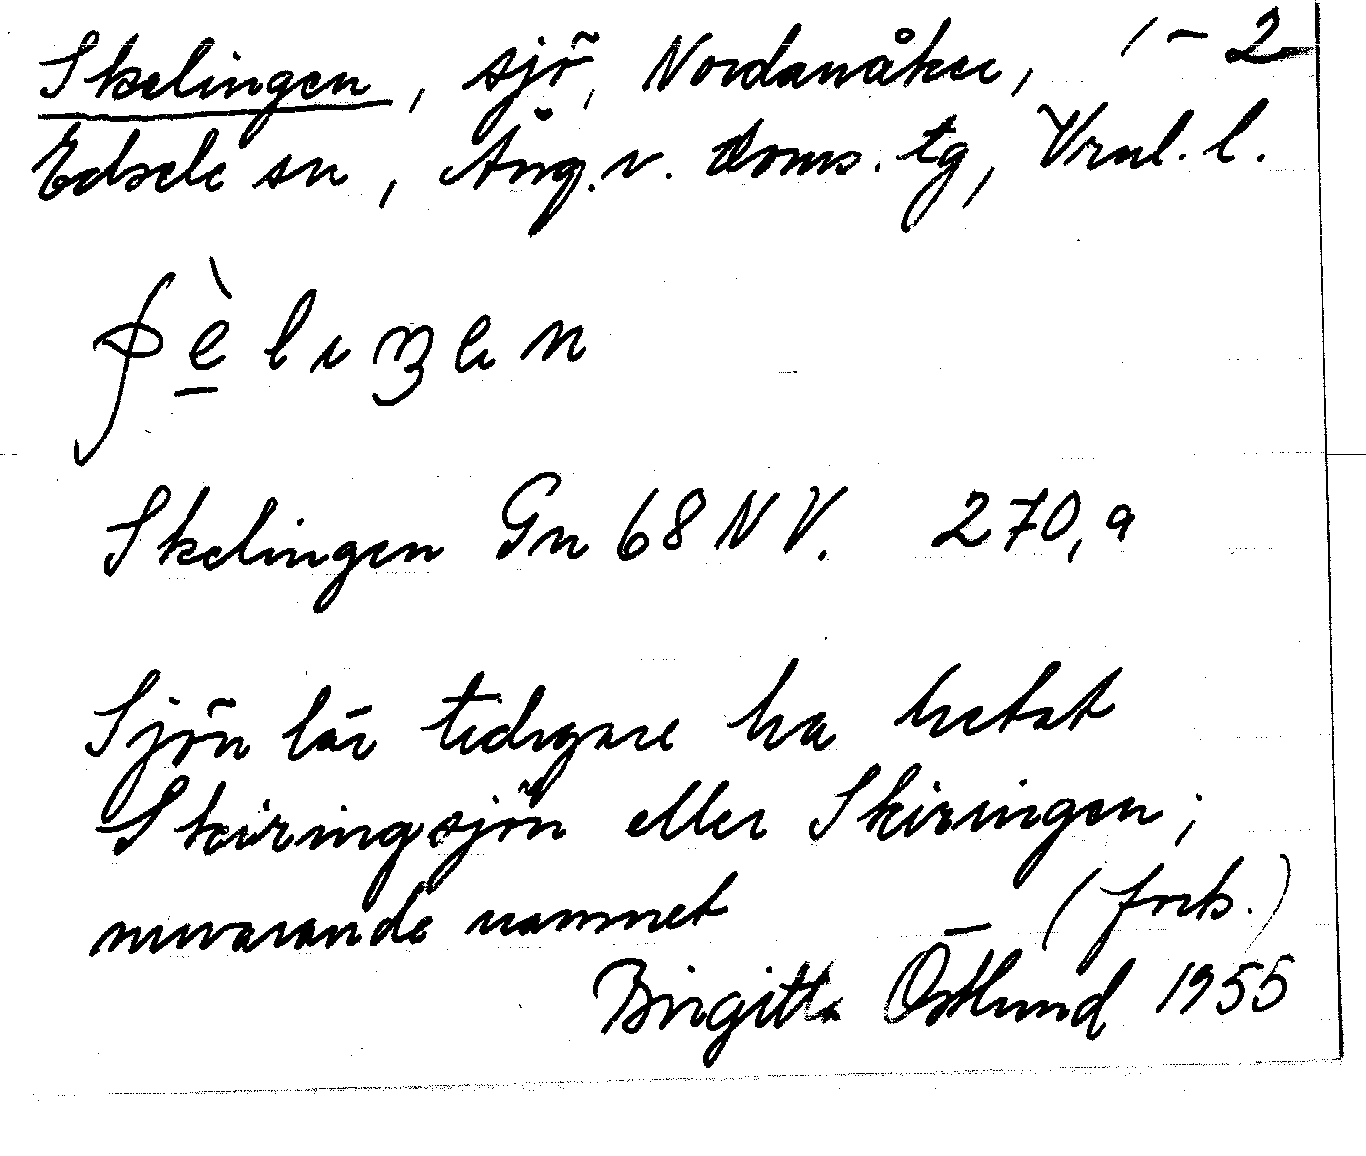 Skelingen, sjö, Nordanåker, 1-2
Edsele sn, Ång. v. doms. tg, Vrnl. l.
Skelingen Gn 68 NV. 270,9
Sjön lär tidigare ha hetat
Skiringsjön eller Skiringen;
nuvarande namnet (forts.)
Birgitta Östlund 1955